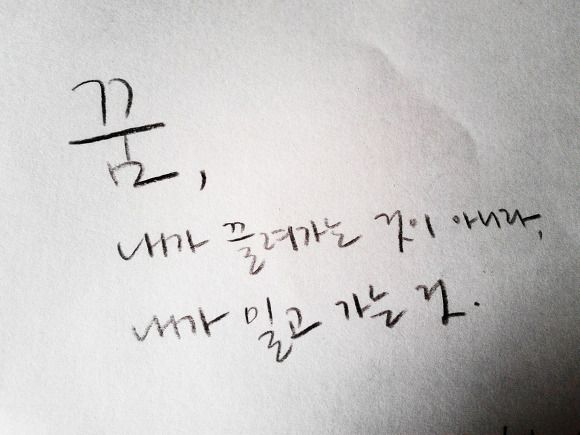 꿈,
내가 끌려가는 것이 아니라,
내가 밀고 가는 것.